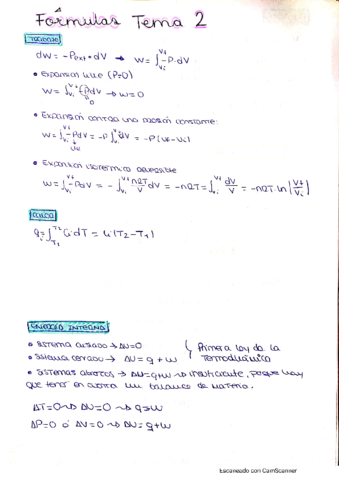 Fórmulas Tema 2
TRABAJO
dw = -Pext·dV → w = ∫ -P·dV
• Expansión libre (P=0)
w = ∫ -PdV → w=0
• Expansión contra una presión constante:
w = ∫ -PdV = -P∫ dV = -P(Vf-Vi)
• Expansión isotérmica reversible
w = ∫ -PdV = -∫ nRT/V dV = -nRT = ∫ dV/V = -nRT ln|Vf/Vi|
CALOR
q = ∫ Ci dT = Ci (T2-T1)
ENERGÍA INTERNA
• Sistema aislado → ΔU=0
• Sistema cerrado → ΔU = q + w
Primera ley de la
Termodinámica
• Sistemas abiertos → ΔU=q+w → insuficiente, porque hay
que tener en cuenta un balance de materia.
ΔT=0 → ΔU=0 → q=w
ΔP=0 ó ΔV=0 → ΔU=q+w
Escaneado con CamScanner